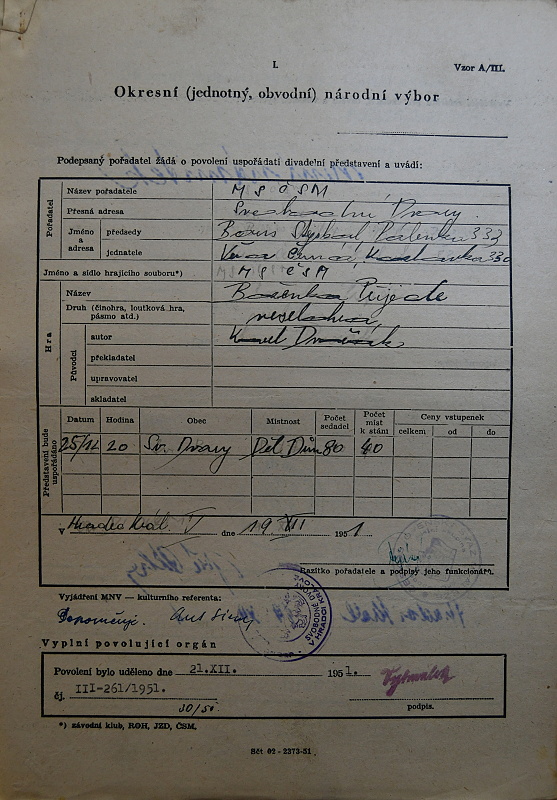 I.
Vzor A/III.
Okresní (jednotný, obvodní) národní výbor
Podepsaný pořadatel žádá o povolení uspořádati divadelní představení a uvádí:
Pořadatel
Název pořadatele M S ČSM
Přesná adresa Svobodné Dvory
Jméno a adresa
předsedy Boris 333
jednatele Věra
Jméno a sídlo hrajícího souboru*) M S ČSM
Hra
Název Přijede
Druh (činohra, loutková hra, pásmo atd.) veselohra
Původci
autor Karel Dvořák
překladatel
upravovatel
skladatel
Představení bude uspořádáno
Datum Hodina Obec Místnost Počet sedadel Počet míst k stání Ceny vstupenek
celkem od do
25/12 20 Sv. Dvory Děl. Dům 80 40
V Hradec Král. V dne 19 XII 1951
Razítko pořadatele a podpisy jeho funkcionářů.
Vyjádření MNV — kulturního referenta:
Doporučuji.
SVOBODNÉ DVORY
V HRADCI KRÁLOVÉ
Vyplní povolující orgán
Povolení bylo uděleno dne 21.XII. 1951.
čj. III-261/1951.
podpis.
*) závodní klub, ROH, JZD, ČSM.
Sčt 02 - 2373-51